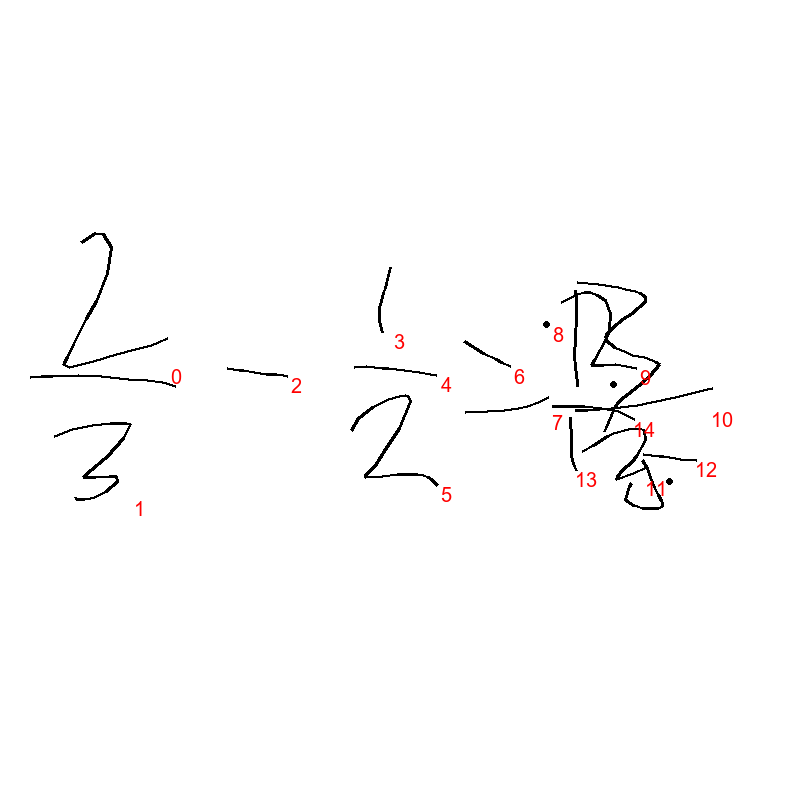 2/3 - 1/2 =
0 1 2 3 4 5 6 7 8 9 10 11 12 13 14